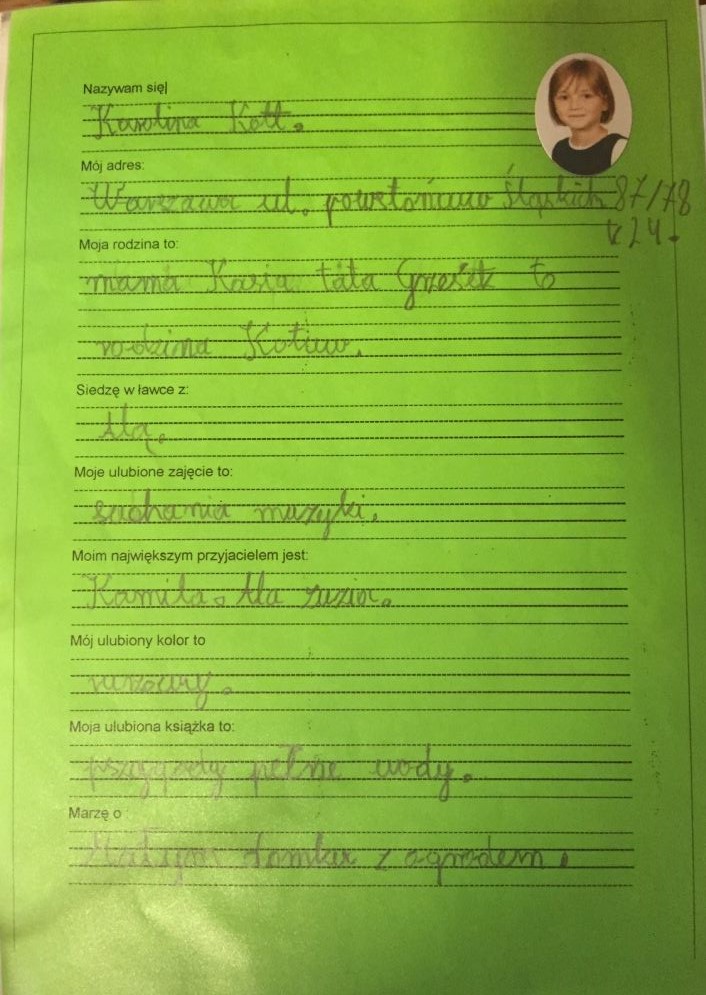 Nazywam się
Karolina Kott.
Mój adres:
Warszawa ul. powstańcuw Śląskich 87/78
24.
Moja rodzina to:
mama Kasia tata Grzesiek to
rodzina Kotuw.
Siedzę w ławce z:
Alą.
Moje ulubione zajęcie to:
suchania muzyki.
Moim największym przyjacielem jest:
Kamila. Ala zuzia.
Mój ulubiony kolor to
rurzowy.
Moja ulubiona książka to:
pszygody pełne wody.
Marzę o
Małym domku z ogrodem.